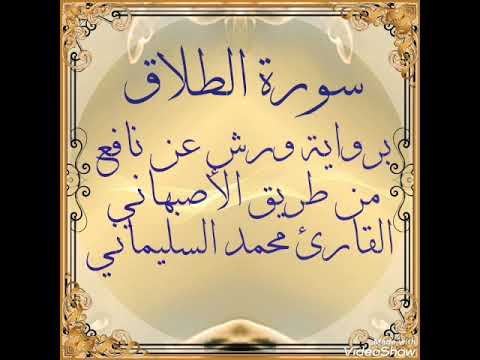 سورة الطلاق
برواية ورش عن نافع
من طريق الأصبهاني
القارئ محمد السليماني
Made with
VideoShow